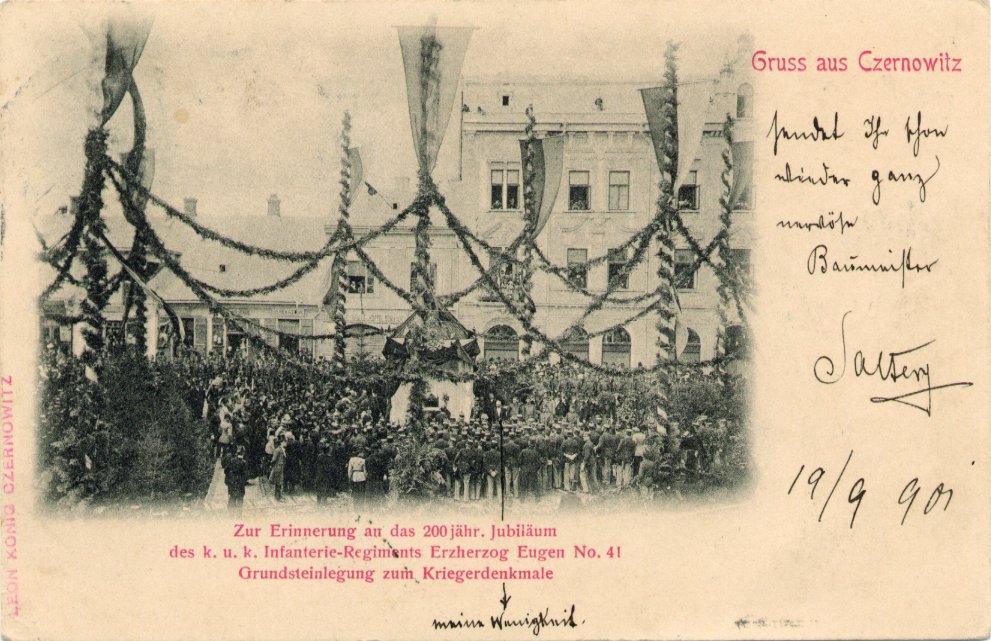 Gruss aus Czernowitz
sendet Ihr schon
wieder ganz
nervöse
Baumeister
Saltery
19/9 901
Zur Erinnerung an das 200jähr. Jubiläum
des k. u. k. Infanterie-Regiments Erzherzog Eugen No. 41
Grundsteinlegung zum Kriegerdenkmale
meine Wenigkeit.
LEON KÖNIG CZERNOWITZ